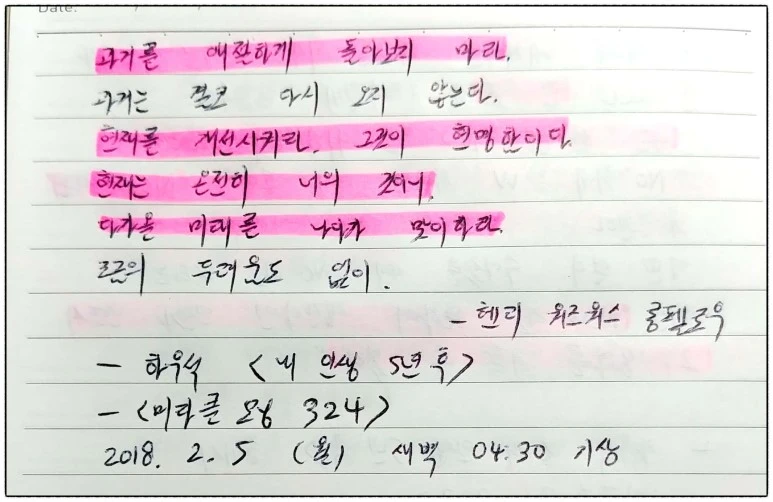 Date:
과거를 애절하게 돌아보지 마라.
과거는 결코 다시 오지 않는다.
현재를 개선시켜라. 그것이 현명함이다.
현재는 온전히 너의 것이니.
다가올 미래를 나아가 맞이하라.
조금의 두려움도 없이.
- 헨리 워즈워스 롱펠로우
- 하우석 <내 인생 5년 후>
- <미라클 모닝 324>
2018. 2. 5 (월) 새벽 04:30 기상